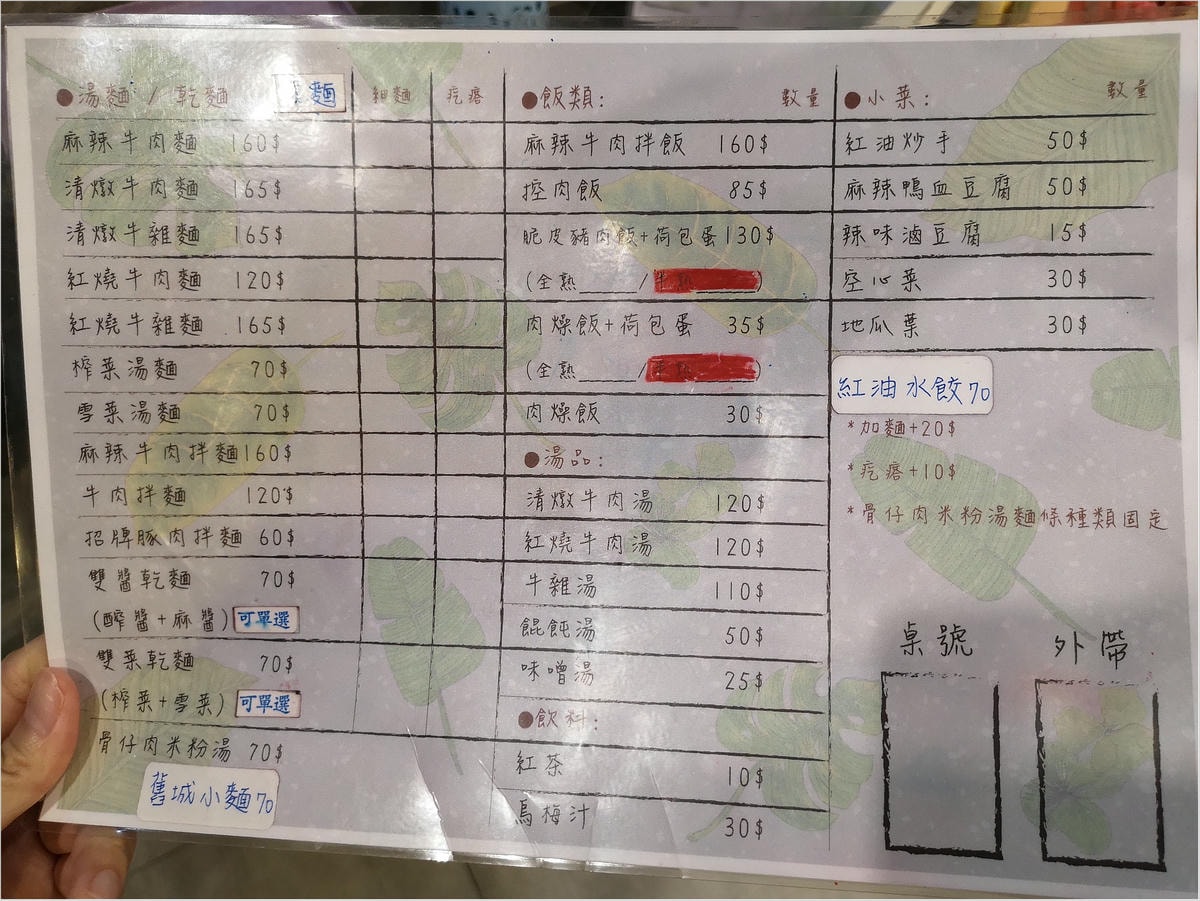 ●湯麵 / 乾麵 麵 細麵 疙瘩
麻辣牛肉麵 160$
清燉牛肉麵 165$
清燉牛雜麵 165$
紅燒牛肉麵 120$
紅燒牛雜麵 165$
榨菜湯麵 70$
雪菜湯麵 70$
麻辣牛肉拌麵 160$
牛肉拌麵 120$
招牌豚肉拌麵 60$
雙醬乾麵 70$
(醡醬+麻醬) 可單選
雙菜乾麵 70$
(榨菜+雪菜) 可單選
骨仔肉米粉湯 70$
舊城小麵70
●飯類: 數量
麻辣牛肉拌飯 160$
控肉飯 85$
脆皮豬肉飯+荷包蛋 130$
(全熟____/半熟)
肉燥飯+荷包蛋 35$
(全熟____/半熟)
肉燥飯 30$
●湯品:
清燉牛肉湯 120$
紅燒牛肉湯 120$
牛雜湯 110$
餛飩湯 50$
味噌湯 25$
●飲料:
紅茶 10$
烏梅汁 30$
●小菜: 數量
紅油炒手 50$
麻辣鴨血豆腐 50$
辣味滷豆腐 15$
空心菜 30$
地瓜葉 30$
紅油水餃70
*加麵+20$
*疙瘩+10$
*骨仔肉米粉湯麵條種類固定
桌號 外帶